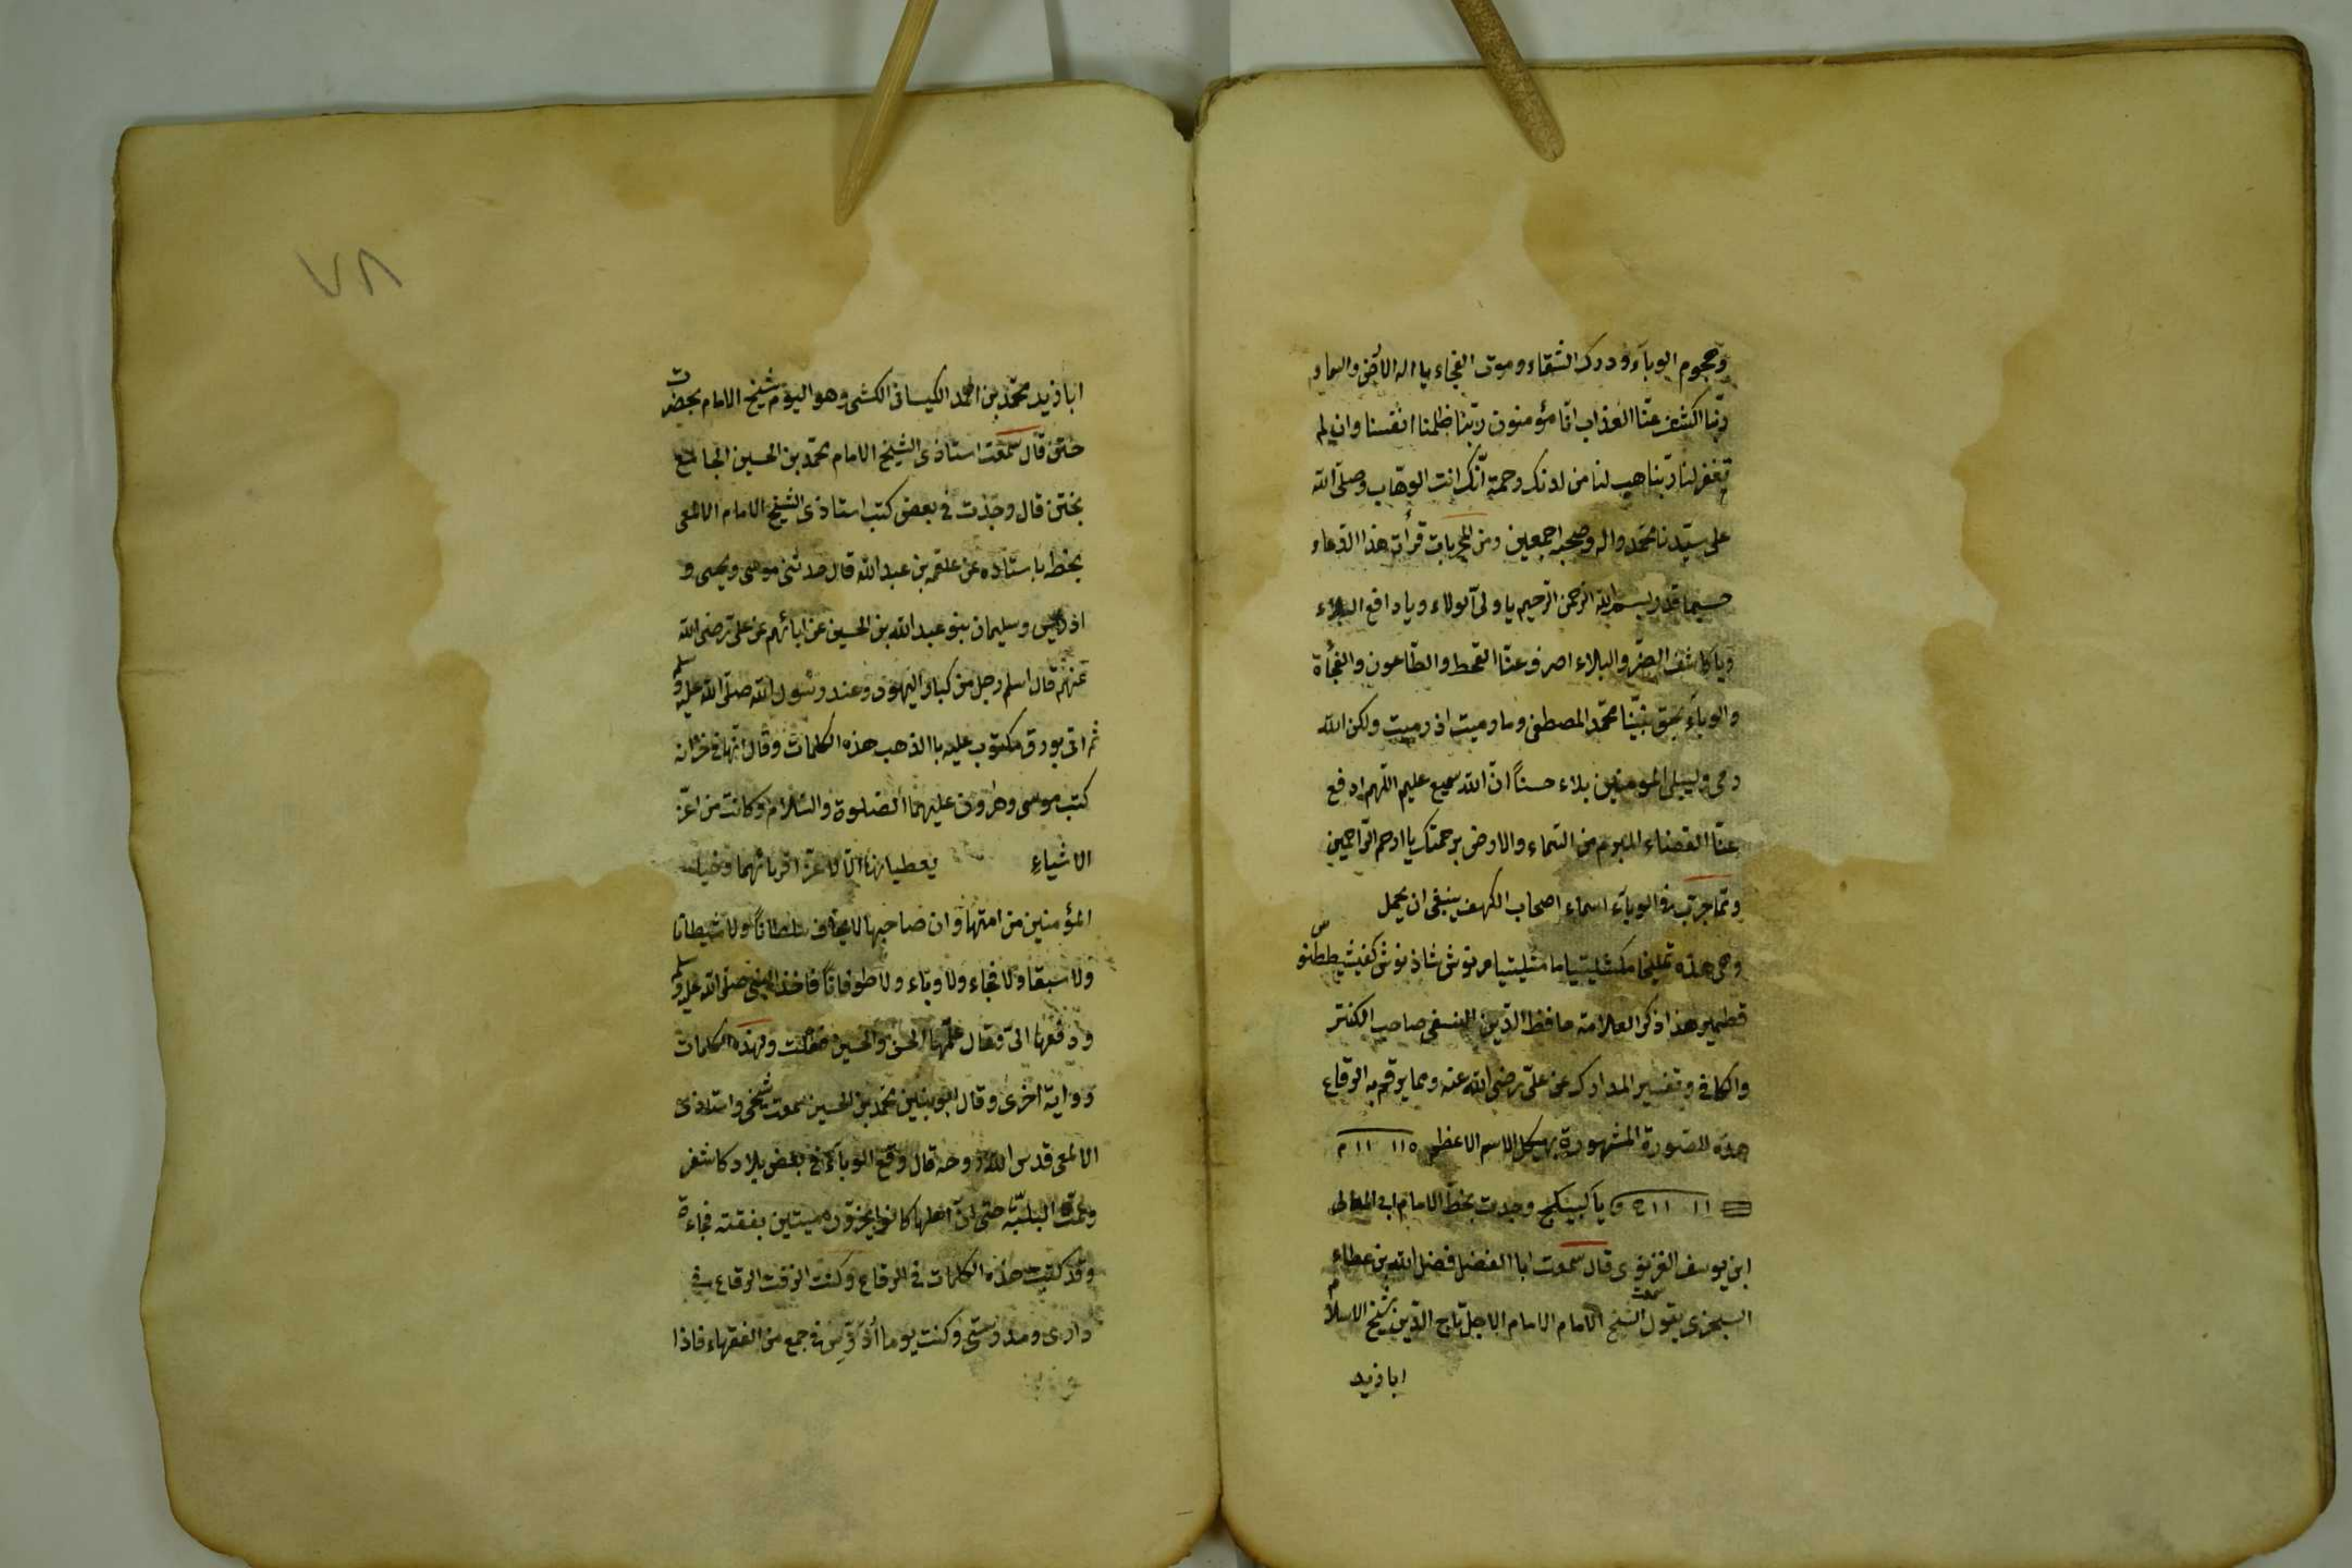 وهجوم الوباء ودرك الشقاء وموت الفجاء يا اله الارض والسماء
ربنا اكشف عنا العذاب انا مؤمنون ربنا ظلمنا انفسنا وان لم
تغفر لنا ربنا هب لنا من لدنك رحمة انك انت الوهاب وصلى الله
على سيدنا محمد واله وصحبه اجمعين ومن المجربات قرأت هذا الدعاء
بسم الله الرحمن الرحيم يا ولى الولاء ويا دافع البلاء
ويا كاشف الضر والبلاء اصرف عنا القحط والطاعون والفجأة
والوباء بحق نبينا محمد المصطفى وما رميت اذ رميت ولكن الله
رمى وليبلى المومنين بلاء حسناً ان الله سميع عليم اللهم ادفع
عنا القضاء المبرم من السماء والارض برحمتك يا ارحم الراحمين
ومما جرب فى الوباء اسماء اصحاب الكهف ينبغى ان يحمل
وهى هذه يمليخا مكشلينيا مثلينيا مرنوش شاذنوش
قطمير هذا ذكر العلامة حافظ الدين النسفى صاحب الكنز
والكافى وتفسير المدارك عن على رضى الله عنه ومما يرقم به الرقاع
هذه الصورة المشهورة بهيكل الاسم الاعظم ١١٥ ١١ م
١١ ١١١ و يا كبيكج وجدت بخط الامام ابى المعالى
ابن يوسف الغزنوى قال سمعت ابا الفضل فضل الله بن عطاء
السجزى يقول سمعت الشيخ الامام الاجل تاج الدين شيخ الاسلام
ابا زيد
٧٨
ابا زيد محمد بن احمد الكيسانى الكشى وهو اليوم شيخ الامام بحضرت
ختن قال سمعت استاذى الشيخ الامام محمد بن الحسين الجامع
بختن قال وجدت فى بعض كتب استاذى الشيخ الامام الالمعى
بخطه باستاده عن علقمه بن عبد الله قال حدثنى موسى ويحيى و
ادريس وسليمان بنو عبد الله بن الحسين عن ابائهم عن على رضى الله
عنهم قال اسلم رجل من كبار اليهود وعند رسول الله صلى الله عليه وسلم
ثم اتى بورق مكتوب عليه باالذهب هذه الكلمات وقال انها فى خزانه
كتب موسى وهارون عليهما الصلوة والسلام وكانت من اعز
الاشياء يعطيانها الا لاعز اقربائهما وخيار
المؤمنين من امتها وان صاحبها لا يخاف سلطاناً ولا شيطانا
ولا سبعا ولا فجاء ولا وباء ولا طوفاناً فاخذ النبى صلى الله عليه وسلم
ودفعها الى وقال علمها الحسن والحسين ففعلت ولهذه الكلمات
رواية اخرى وقال محمد بن الحسين سمعت شيخى واستاذى
الالمعى قدس الله روحه قال وقع الوباء فى بعض بلاد كاشغر
وعمت البلية حتى ان اهلها كانوا ميتين بغتة فجاءة
وقد كتبت هذه الكلمات فى الرقاع وكنت الزقت الرقاع فى
دارى ومدرستى وكنت يوما أدرس فى جمع من الفقهاء فاذا